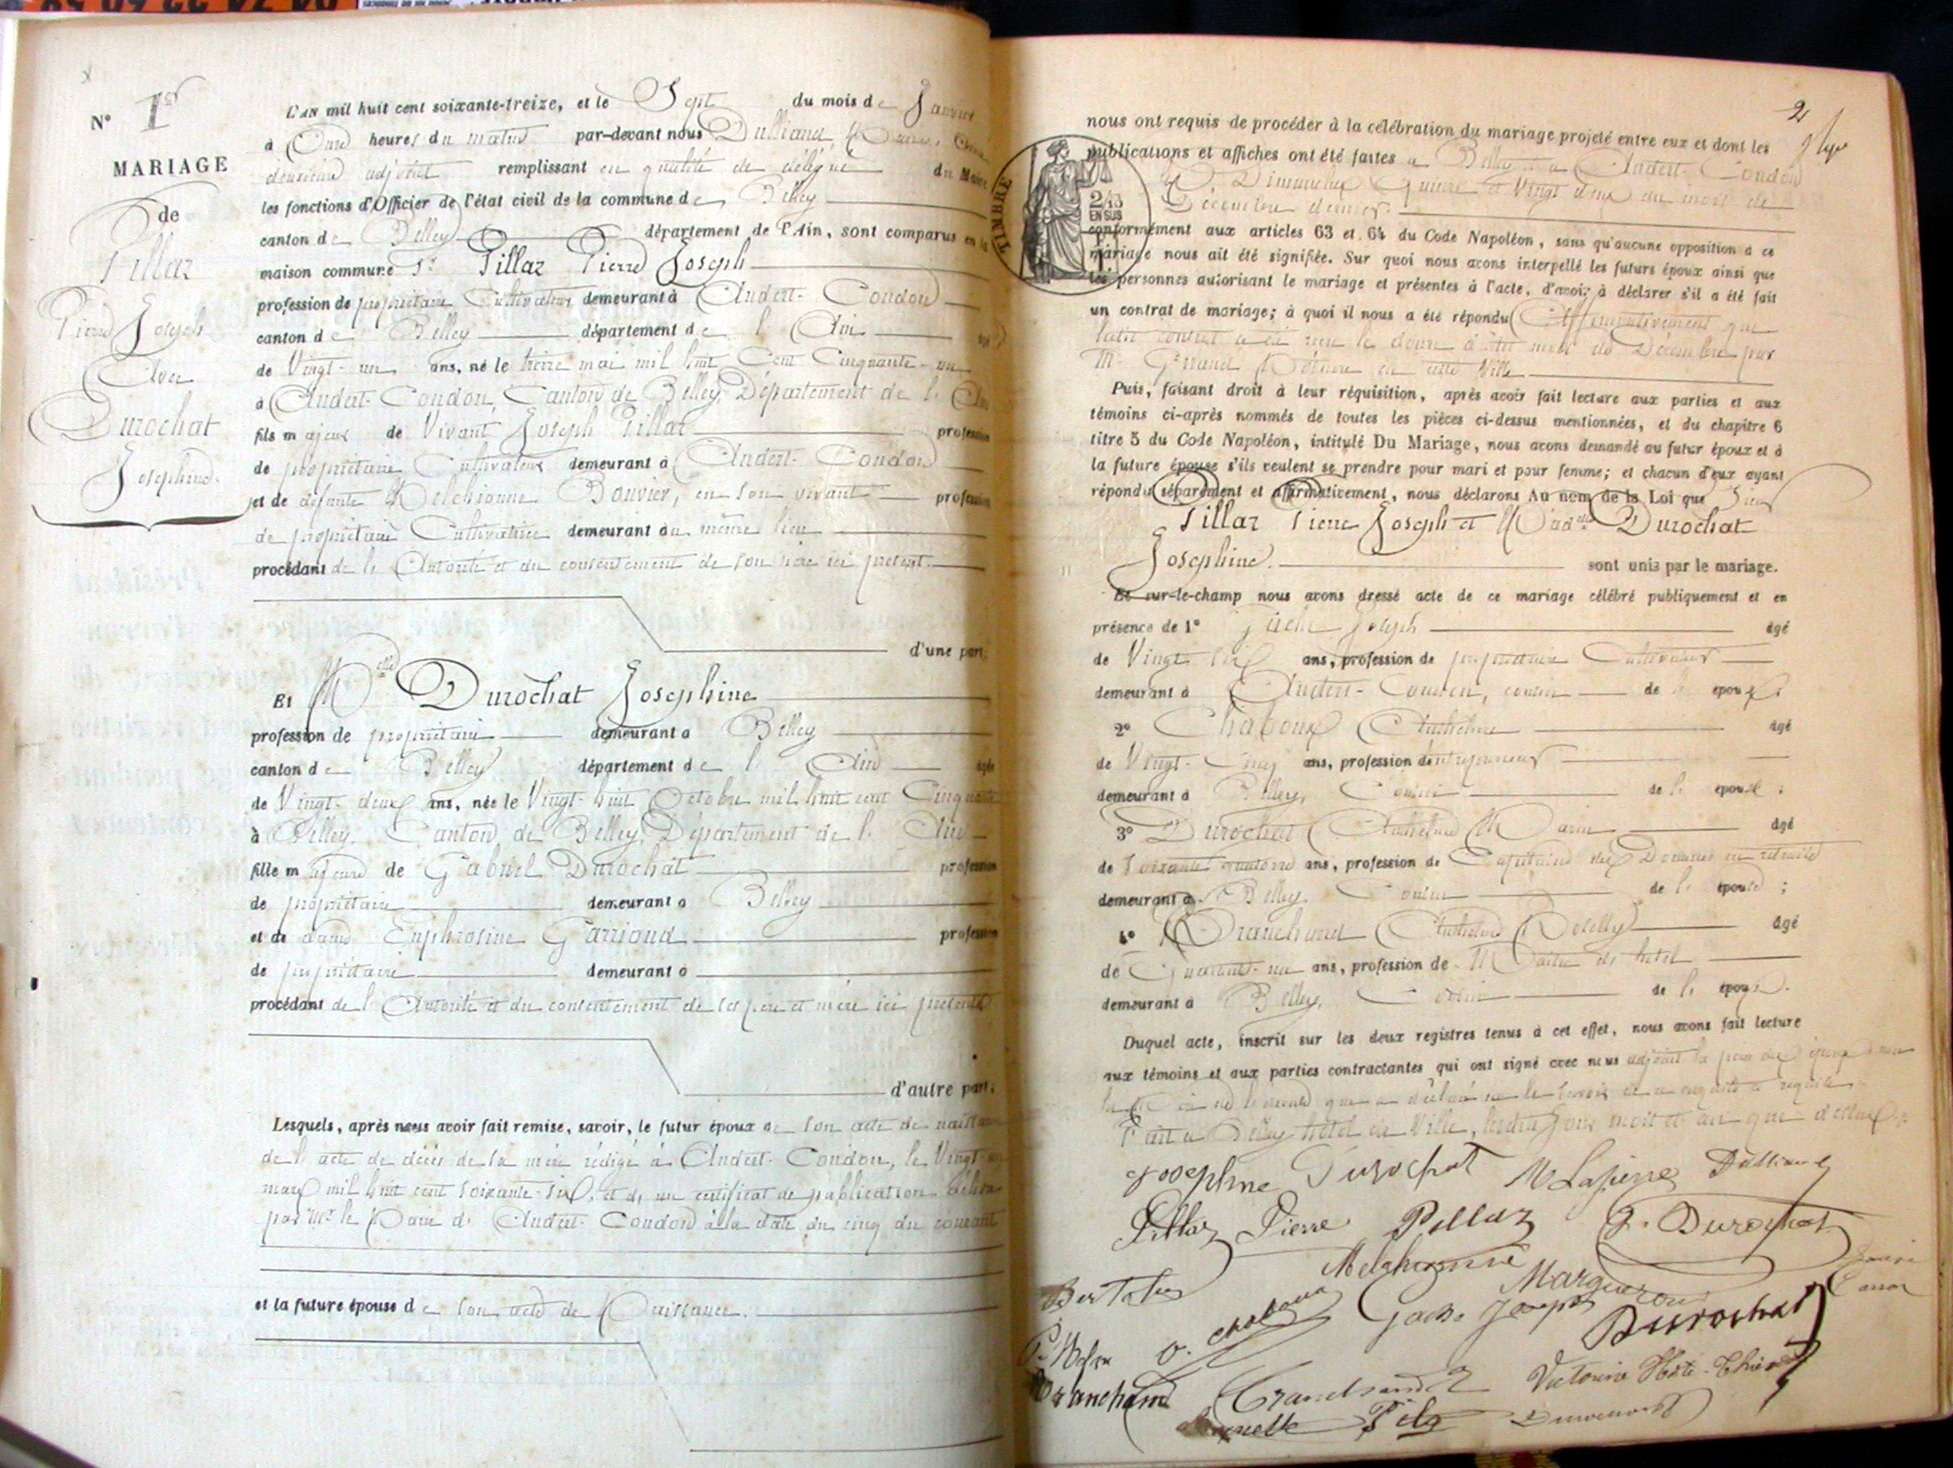 N° 1er
MARIAGE
de
Pillaz
Pierre Joseph
Avec
Durochat
Josephine.
L'AN mil huit cent soixante-treize, et le Sept du mois de Janvier
à Onze heures du matin par-devant nous Dulliand
deuxième adjoint remplissant en qualité de délégué du Maire
les fonctions d'Officier de l'état civil de la commune de Belley
canton de Belley département de l'Ain, sont comparus en la
maison commune Sr Pillaz Pierre Joseph
profession de propriétaire Cultivateur demeurant à Andert-Condon
canton de Belley département de l'Ain âgé
de Vingt-un ans, né le treize mai mil huit Cent Cinquante-un
à Andert-Condon, Canton de Belley, Département de l'Ain
fils majeur de Vivant Joseph Pillaz profession
de propriétaire Cultivateur demeurant à Andert-Condon
et de défunte Melchionne Bouvier, en son vivant profession
de propriétaire Cultivatrice demeurant au même lieu
procédant de l'Autorité et du consentement de son père ici présent.
d'une part;
Et Melle Durochat Josephine
profession de propriétaire demeurant à Belley
canton de Belley département de l'Ain âgée
de Vingt-deux ans, née le Vingt-huit Octobre mil huit cent Cinquante
à Belley, Canton de Belley, Département de l'Ain
fille majeure de Gabriel Durochat profession
de propriétaire demeurant à Belley
et de dame Euphrosine Garrioud profession
de propriétaire demeurant à
procédant de l'Autorité et du consentement de ses père et mère ici présents
d'autre part;
Lesquels, après nous avoir fait remise, savoir, le futur époux de son acte de naissance
de l'acte de décès de sa mère rédigé à Andert-Condon, le Vingt-un
mars mil huit cent soixante-six, et de un certificat de publication délivré
par Mr le Maire d'Andert-Condon à la date du cinq du courant
et la future épouse de son acte de Naissance.
2
nous ont requis de procéder à la célébration du mariage projeté entre eux et dont les
publications et affiches ont été faites à Belley et à Andert-Condon
Dimanches Quinze et Vingt deux du mois de
Décembre dernier.
TIMBRE
2/10
EN SUS
conformément aux articles 63 et 64 du Code Napoléon, sans qu'aucune opposition à ce
mariage nous ait été signifiée. Sur quoi nous avons interpellé les futurs époux ainsi que
les personnes autorisant le mariage et présentes à l'acte, d'avoir à déclarer s'il a été fait
un contrat de mariage; à quoi il nous a été répondu Affirmativement que
ledit contrat a été reçu le douze du mois de Décembre par
Me notaire en cette Ville
Puis, faisant droit à leur réquisition, après avoir fait lecture aux parties et aux
témoins ci-après nommés de toutes les pièces ci-dessus mentionnées, et du chapitre 6
titre 5 du Code Napoléon, intitulé Du Mariage, nous avons demandé au futur époux et à
la future épouse s'ils veulent se prendre pour mari et pour femme; et chacun d'eux ayant
répondu séparément et affirmativement, nous déclarons Au nom de la Loi que Sieur
Pillaz Pierre Joseph et Mad.elle Durochat
Josephine. sont unis par le mariage.
Et sur-le-champ nous avons dressé acte de ce mariage célébré publiquement et en
présence de 1° Joseph âgé
de Vingt six ans, profession de propriétaire Cultivateur
demeurant à Andert-Condon, cousin de l'époux;
2° Chaboux Anthelme âgé
de Vingt-Cinq ans, profession d'entrepreneur
demeurant à Belley, Cousin de l'épouse;
3° Durochat Anthelme Marie âgé
de Soixante quatorze ans, profession de Capitaine des Douanes en retraite
demeurant à Belley, Cousin de l'épouse;
4° Branchand Anthelme âgé
de Quarante-un ans, profession de Maître d'hôtel
demeurant à Belley, Cousin de l'épouse.
Duquel acte, inscrit sur les deux registres tenus à cet effet, nous avons fait lecture
aux témoins et aux parties contractantes qui ont signé avec nous adjoint
Fait à Belley, hôtel de Ville, lesdits jour, mois et an que dessus.
Josephine Durochat M Lapierre Dulliand
Pillaz Pierre Pillaz G. Durochat
Melchionne
Marguerou
Joseph
Durochat
Branchand
Grandsand Victorine